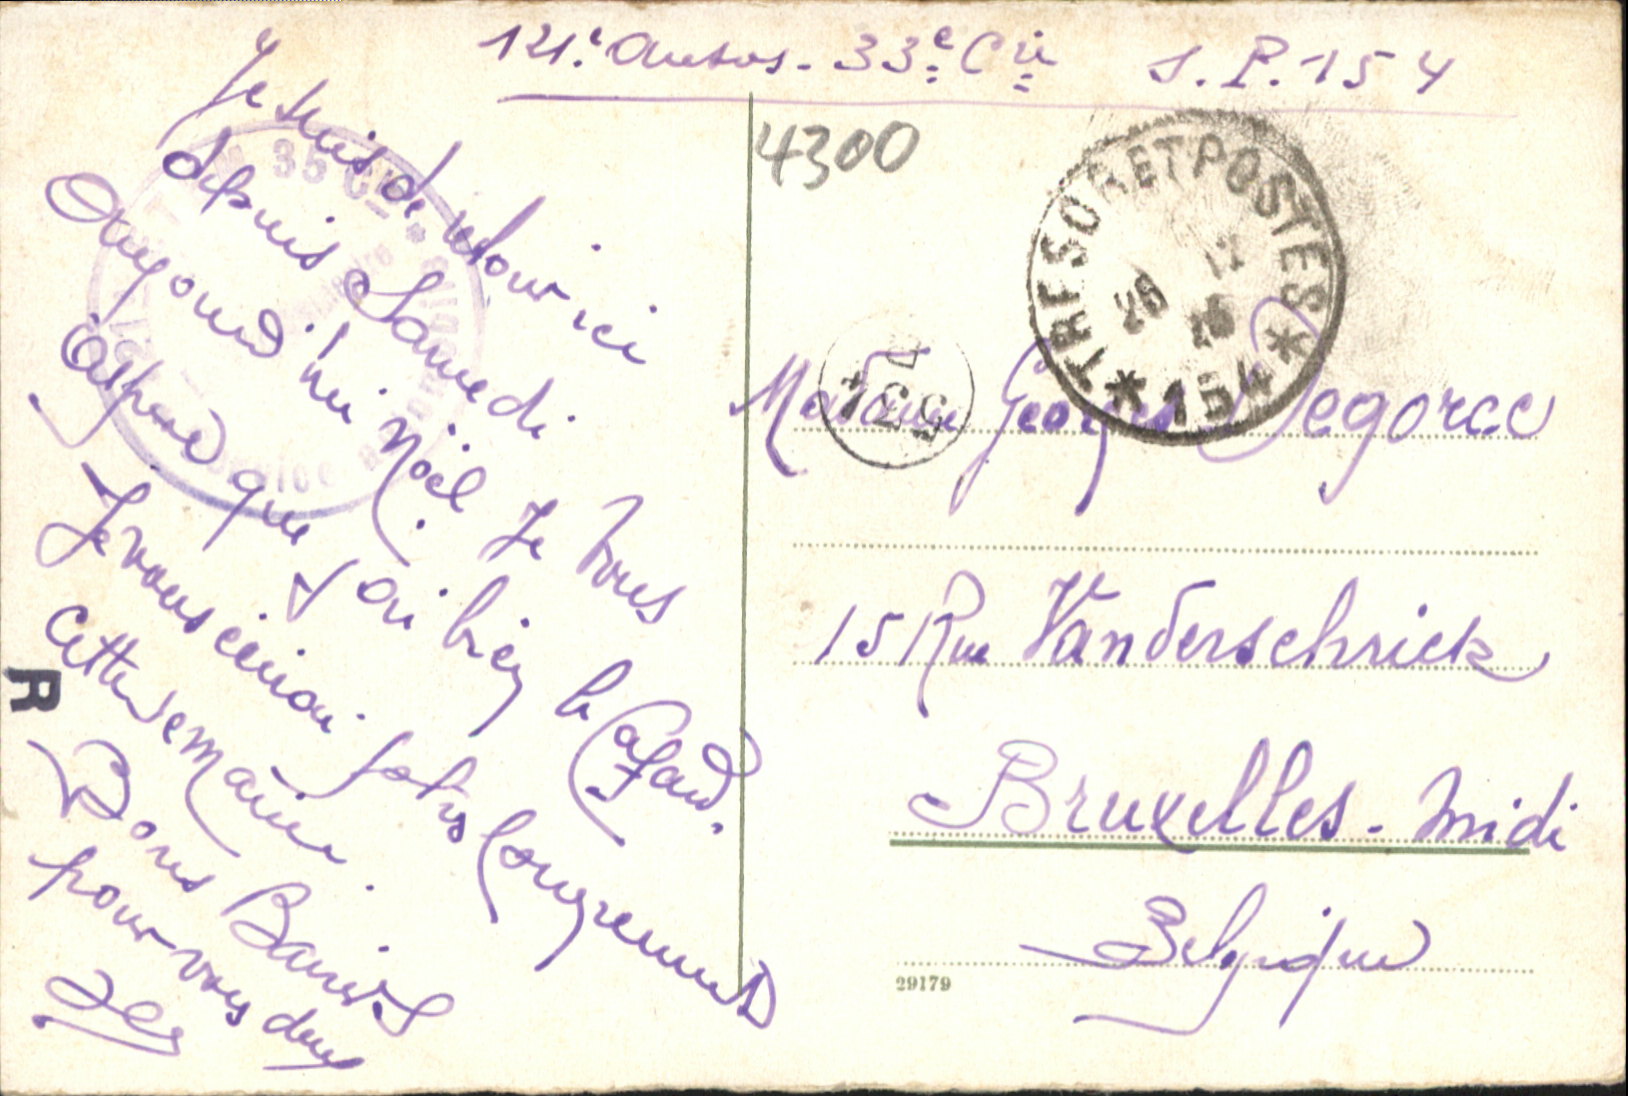 121.e autos. 33.e Cie S.P. 154
Je suis de retour ici
depuis Samedi
Aujourd'hui Noël. Je vous
assure que j'ai bien le Cafard.
Je vous écrirai plus longuement
Cette semaine.
Bons Baisers
pour vous deux
4300
TRESOR ET POSTES
26 12
26
* 154 *
Madame Georges Degorce
15 Rue Vanderschrick
Bruxelles - midi
Belgique
29179
R
35 Cie